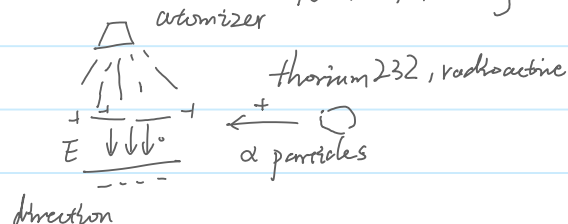 atomizer
thorium 232, radioactive
+ + +
E
α particles
direction